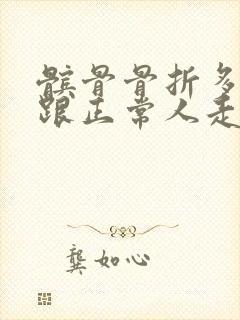 髌骨骨折多
跟正常人走
龚如心